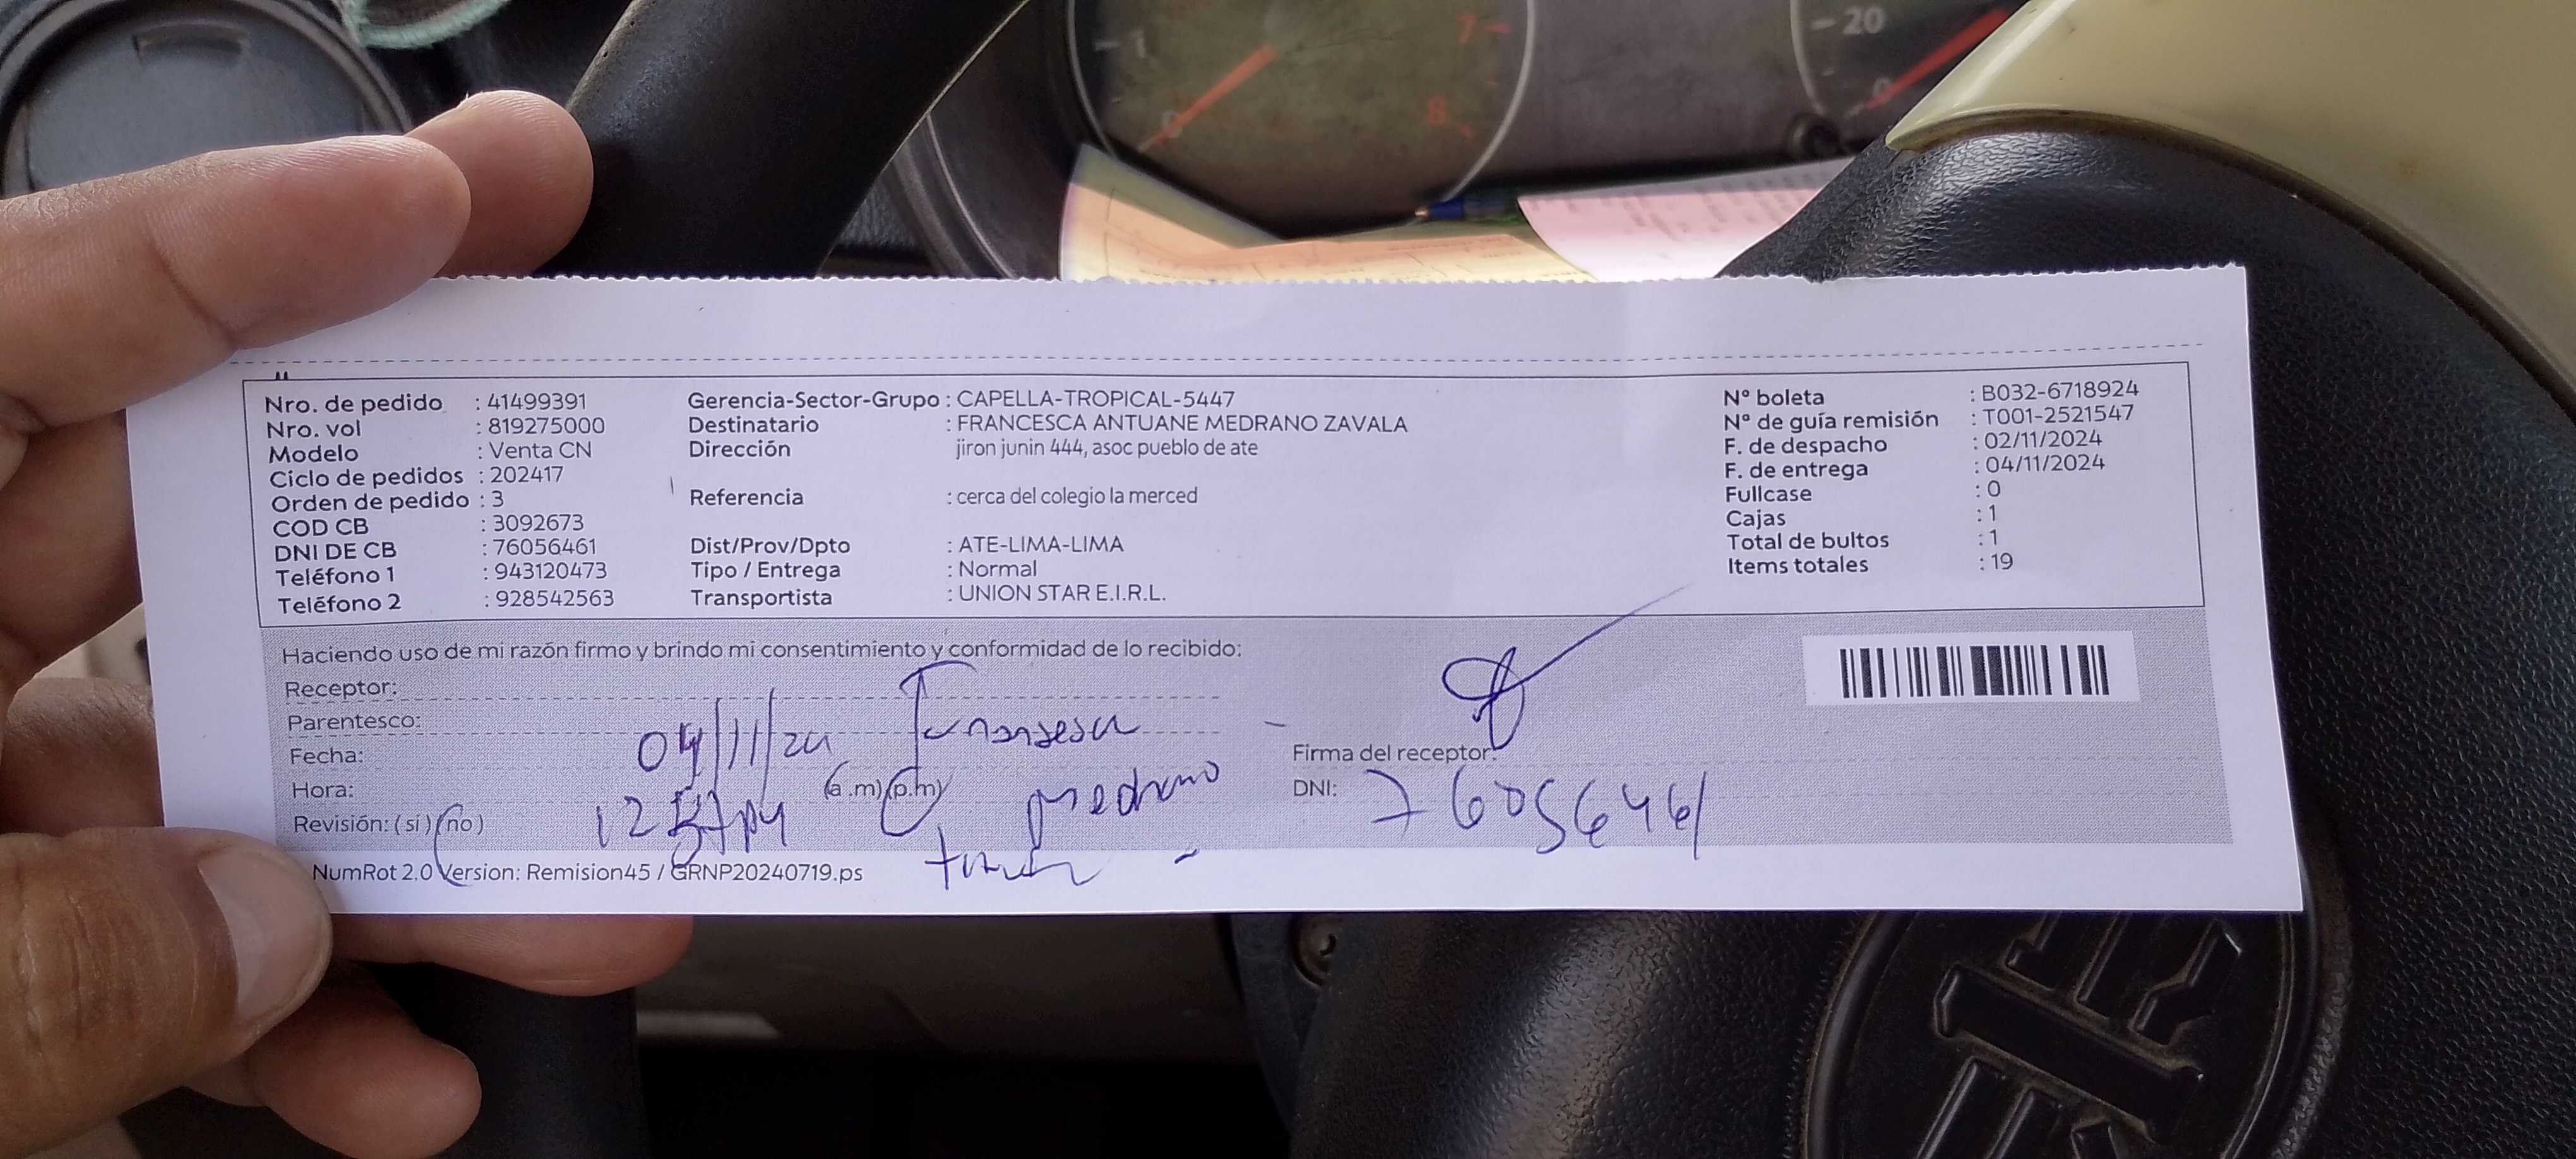 Nro. de pedido : 41499391
Nro. vol : 819275000
Modelo : Venta CN
Ciclo de pedidos : 202417
Orden de pedido : 3
COD CB : 3092673
DNI DE CB : 76056461
Teléfono 1 : 943120473
Teléfono 2 : 928542563
Gerencia-Sector-Grupo : CAPELLA-TROPICAL-5447
Destinatario : FRANCESCA ANTUANE MEDRANO ZAVALA
Dirección jiron junin 444, asoc pueblo de ate
Referencia : cerca del colegio la merced
Dist/Prov/Dpto : ATE-LIMA-LIMA
Tipo / Entrega : Normal
Transportista : UNION STAR E.I.R.L.
Nº boleta : B032-6718924
Nº de guía remisión : T001-2521547
F. de despacho : 02/11/2024
F. de entrega : 04/11/2024
Fullcase : 0
Cajas : 1
Total de bultos : 1
Items totales : 19
Haciendo uso de mi razón firmo y brindo mi consentimiento y conformidad de lo recibido:
Receptor:
Parentesco:
Fecha: 04/11/24
Hora: 12 (a.m) (p.m)
medrano
Revisión: (si) (no)
Firma del receptor:
DNI: 76056461
NumRot 2.0 Version: Remision45 / GRNP20240719.ps
1
0
7
8
20
0